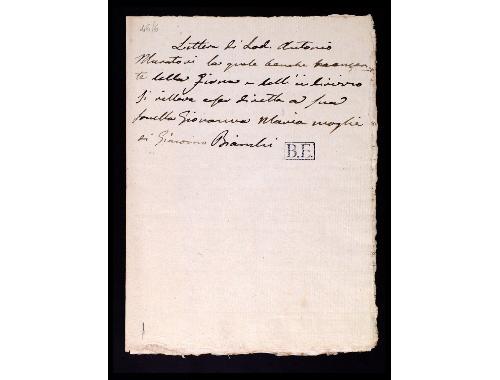 4616
Lettera di Lod. Antonio
Muratori la quale benche mancan
te della Firma e dell' indirizzo
si rileva esser diretta a sua
sorella Giovanna Maria moglie
di Giacomo Bianchi
B.E.